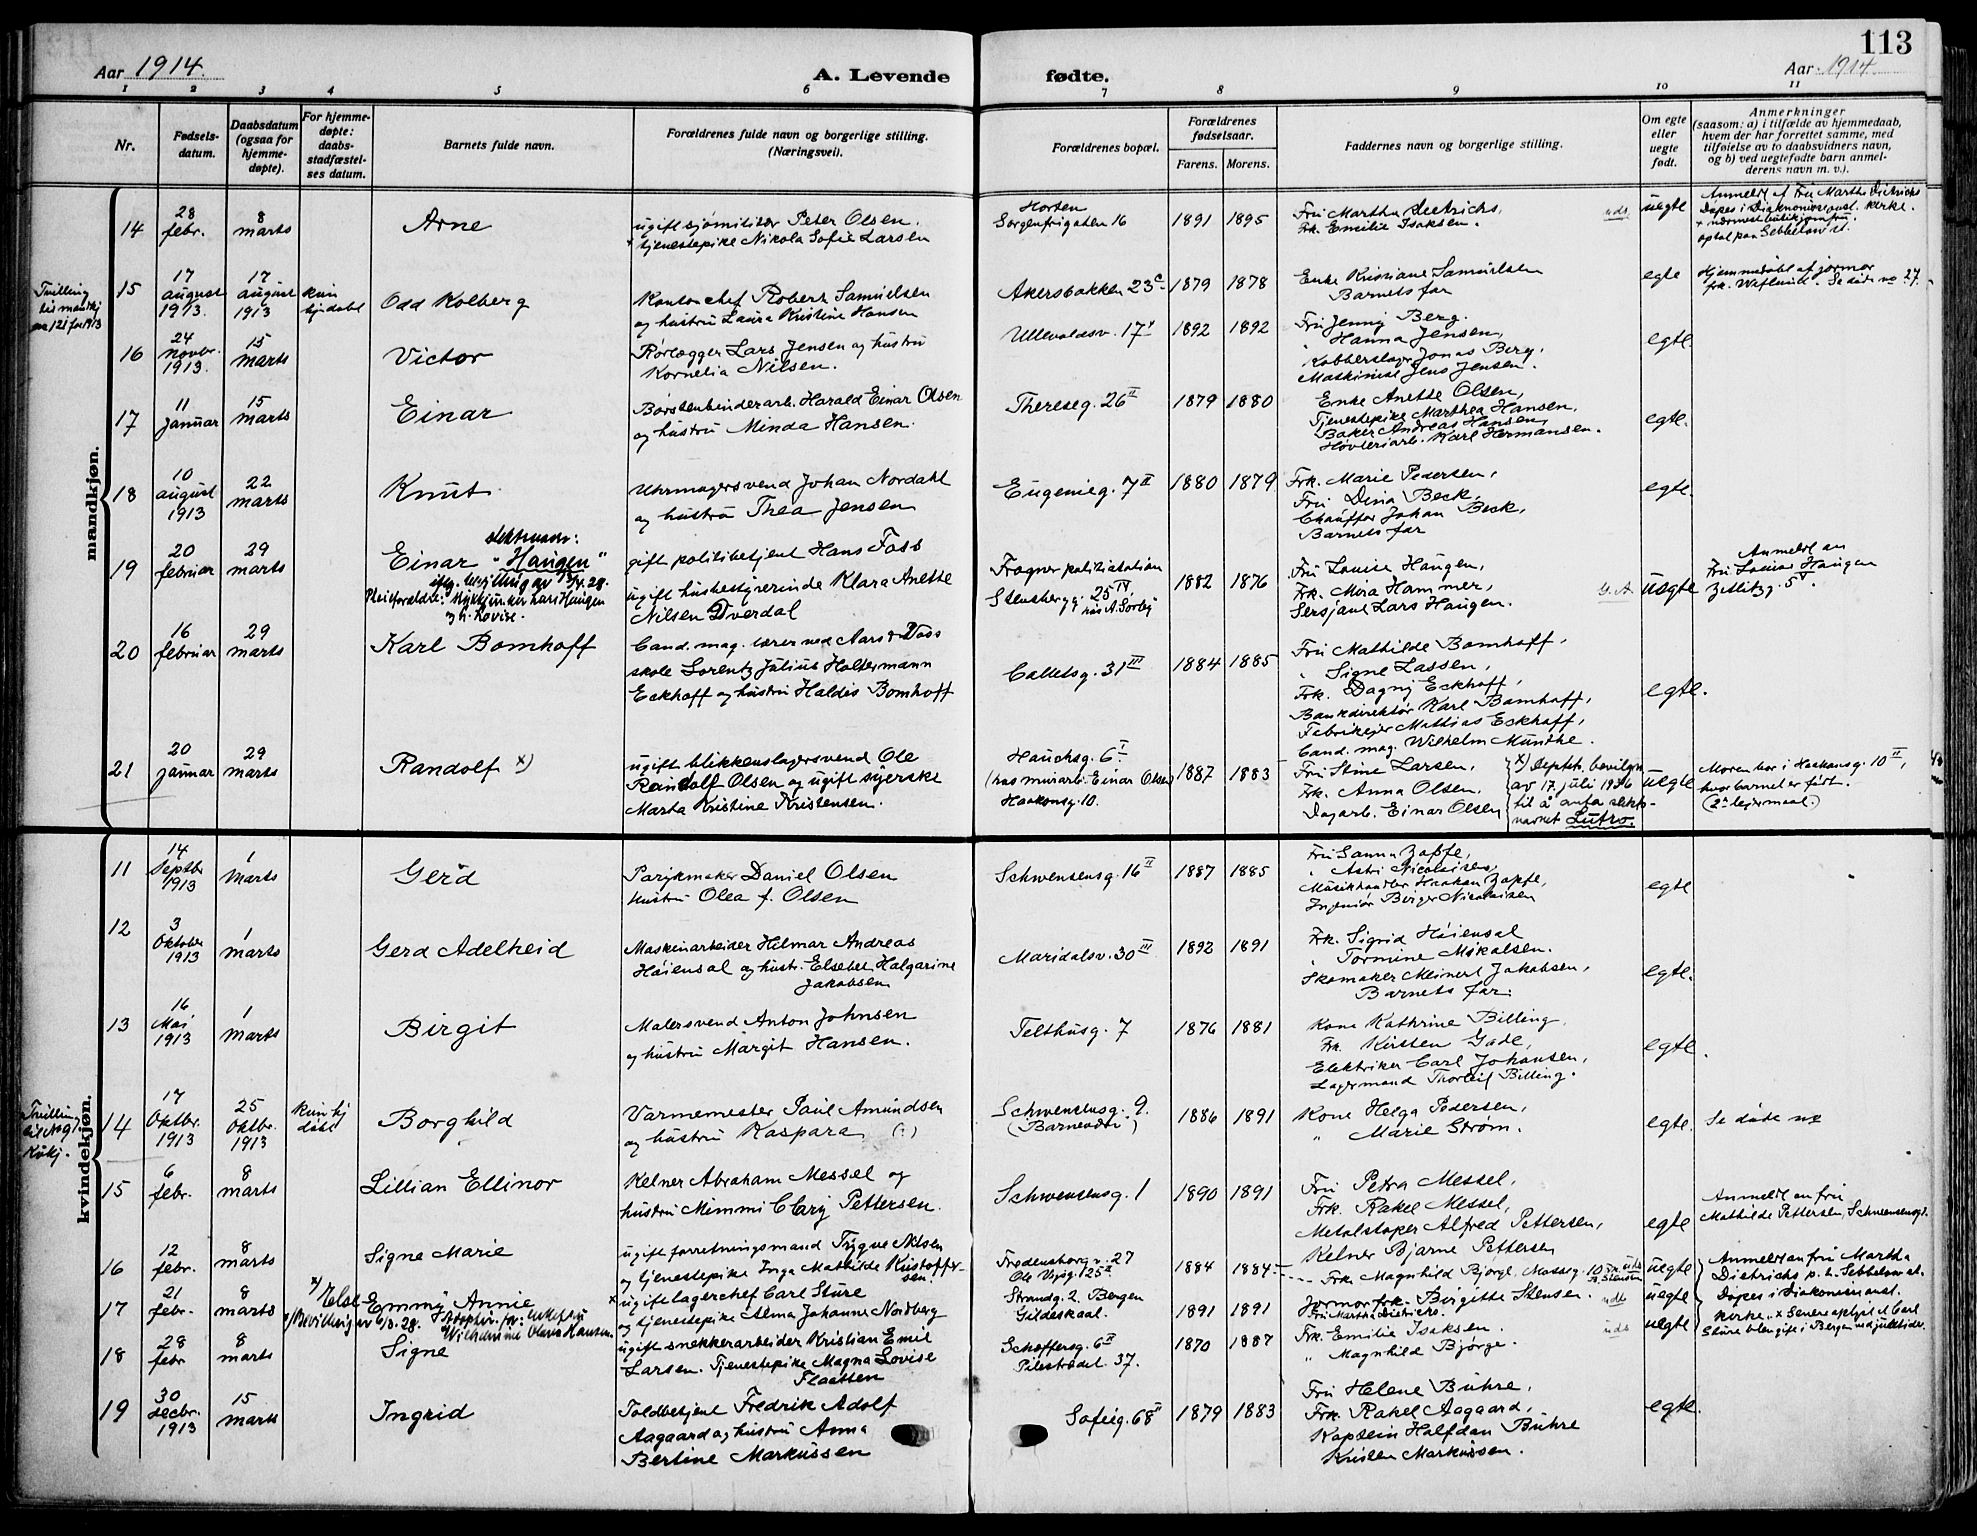 113
Aar 1914.
A. Levende
fødte.
Aar 1914
1 2 3 4 5 6 7 8 9 10 11
Nr.
Fødsels-
datum.
Daabsdatum
(ogsaa for
hjemme-
døpte).
For hjemme-
døpte:
daabs-
stadfæstel-
ses datum.
Barnets fulde navn.
Forældrenes fulde navn og borgerlige stilling.
(Næringsvei).
Forældrenes bopæl.
Forældrenes
fødselsaar.
Farens. Morens.
Faddernes navn og borgerlige stilling.
Om egte
eller
uegte
født.
Anmerkninger
(saasom: a) i tilfælde av hjemmedaab,
hvem der har forrettet samme, med
tilføielse av to daabsvidners navn,
og b) ved uegtefødte barn anmel-
derens navn m. v.).
mandkjøn.
14
28
febr.
8
marts
Arne
ugift sjømilitær Peter Olsen.
tjenestepike Nikola Sofie Larsen
Horten
Sorgenfrigaten 16
1891 1895
Fru Martha Dietrichs,
Frk. Emilie Isaksen.
uegte
Anmeldt af Fru Martha Dietrichs
Tvilling
15
17
august
1913.
17
august
1913
kun
hjdøbt
Odd Kolberg
Kontorchef Robert Samuelsen
og hustru Laura Kristine Hansen
Akersbakken 23c
1879 1878
Enke Kristiane Samuelsen
Barnets far
egte
Hjemmedøbt af jormor
Se døde no 27.
16
24
novbr.
1913.
15
marts
Victor
Rørlægger Lars Jensen og hustru
Kornelia Nilsen.
Ullevoldsv. 17
1892 1892
Fru Jenny Berg.
" Hanna Jensen,
Kobberslager Jonas Berg,
Maskinist Jens Jensen.
egte
17
11
januar
15
marts
Einar
Børstenbinderarb. Harald Einar Olsen
og hustru Minda Hansen.
Thereseg. 26 II
1879 1880
Enke Anette Olsen,
Tjenestepike Marthea Hansen,
Baker Andreas Hansen,
Høvleriarb. Karl Hermansen.
egte.
18
10
august
1913
22
marts
Knut
Uhrmagersvend Johan Nordahl
og hustru Thea Jensen
Eugenieg. 7 II
1880 1879
Frk. Marie Pedersen,
Fru Dina Beck,
Chauffør Johan Beck,
Barnets far
egte
19
20
februar
29
marts
slektsnavn:
Einar "Haugen"
iflg. bevilling av
Pleieforældre: Lars Haugen
og h. Lovise.
gift politibetjent Hans Foss
ugift husbestyrerinde Klara Anette
Nilsen Dverdal
Frogner politistation
Stensberg g. 25 IV.
hos A. Sørby
1882 1876
Fru Louise Haugen,
Frk. Mira Hammer,
Sersjant Lars Haugen.
uegte
Anmeldt av
Fru Louise Haugen
Zetlitzg. 5 V.
20
16
februar
29
marts
Karl Bomhoff
Cand. mag. lærer ved Aars & Voss
skole Lorentz Julius Holtermann
Eckhoff og hustru Haldis Bomhoff
Colletsg. 31 III
1884 1885
Fru Mathilde Bomhoff,
" Signe Lassen,
Frk. Dagny Eckhoff,
Bankdirektør Karl Bomhoff,
Fabrikejer Mathias Eckhoff,
Cand. mag. Wilhelm Munthe.
egte.
21
20
januar
29
marts
Randolf x)
ugift blikkenslagersvend Ole
Randolf Olsen og ugift syerske
Marta Kristine Kristensen.
Hauchsg. 6 I
(hos murarb. Einar Olsen)
Haakonsg. 10.
1887 1883
Fru Stine Larsen,
Frk. Anna Olsen.
Dagarb. Einar Olsen
x) Deptsk. bevilgn.
av 17. juli 1936
til å anta slekts-
navnet Lutro.
uegte
Moren bor i Haakonsg. 10 II,
hvor barnet er født.
(2. leiermaal.)
kvindekjøn.
11
14
Septbr
1913
1
marts
Gerd
Parykmaker Daniel Olsen
hustru Olea f. Olsen
Schwensensg. 16 II
1887 1885
Fru Sanna Zapfe,
" Astri Nicolaisen,
Musikhandler Haakon Zapfe,
Ingeniør Birger Nicolaisen
egte
12
3
Oktober
1913
1
marts
Gerd Adelheid
Maskinarbeider Hilmar Andreas
Høiensal og hustr. Elsebet Halgarine
Jakobsen
Maridalsv. 30 III
1892 1891
Frk. Sigrid Høiensal
" Tormine Mikalsen.
Skomaker Meinert Jakobsen,
Barnets far.
egte.
13
16
Mai
1913
1
marts
Birgit
Malersvend Anton Johnsen
og hustru Margit Hansen.
Telthusg. 7
1876 1881
Kone Kathrine Billing
Frk. Kirsten Gade,
Elektriker Carl Johansen,
Lagermand Thorleif Billing.
egte.
Tvilling
14
17
Oktbr.
1913
25
Oktbr.
1913
kun hj
døbt
Borghild
Varmemester Paul Amundsen
og hustru Kaspara (:)
Schwensensg. 9.
1886 1891
Kone Helga Pedersen,
" Marie Strøm.
egte.
Se døde no
15
6
febr.
8
marts
Lillian Ellinor
Kelner Abraham Messel og
hustru Mimmi Clary Pettersen.
Schwensensg. 1
1890 1891
Fru Petra Messel,
Frk. Rakel Messel,
Metalstøper Alfred Pettersen,
Kelner Bjarne Pettersen
egte
Anmeldt av fru
Mathilde Pettersen, Schwensensg 1.
16
12
febr.
8
marts
Signe Marie
ugift forretningsmand Trygve Nilsen
og tjenestepike Inga Mathilde Kristoffer-
sen.
Fredensborgv. 27
1884 1884
Frk. Magnhild Bjørge, Mossg. 10
uegte
Anmeldt av fru Martha
Dietrichs
17
21
febr.
8
marts
x) Else Emmy Annie
ugift lagerchef Carl Sture
og tjenestepike Alma Johanne Nordberg
Strandg. 2. Bergen
Gildeskaal.
1891 1891
Jormor frk. Birgitte Stensen.
Fru Martha Dietrichs.
uegte
18
28
febr
8
marts
Signe
ugift snekkerarbeider Kristian Emil
Larsen. Tjenestepike Magna Lovise
Flaatten
Schøffersg. 6 II
Pilestrædet 37.
1870 1887
Frk. Emilie Isaksen.
" Magnhild Bjørge.
uegte
19
30
decbr.
1913
15
marts
Ingrid
Toldbetjent Fredrik Adolf
Aagaard og hustru Anna
Bertine Markussen
Sofieg. 68 I
1879 1883
Fru Helene Buhre,
Frk. Rakel Aagaard,
Kaptein Halfdan Buhre
Kristen Markussen.
egte